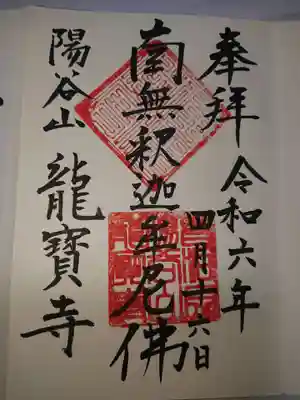 奉拝 令和六年
四月十六日
南無釈迦牟尼佛
陽谷山 龍寶寺